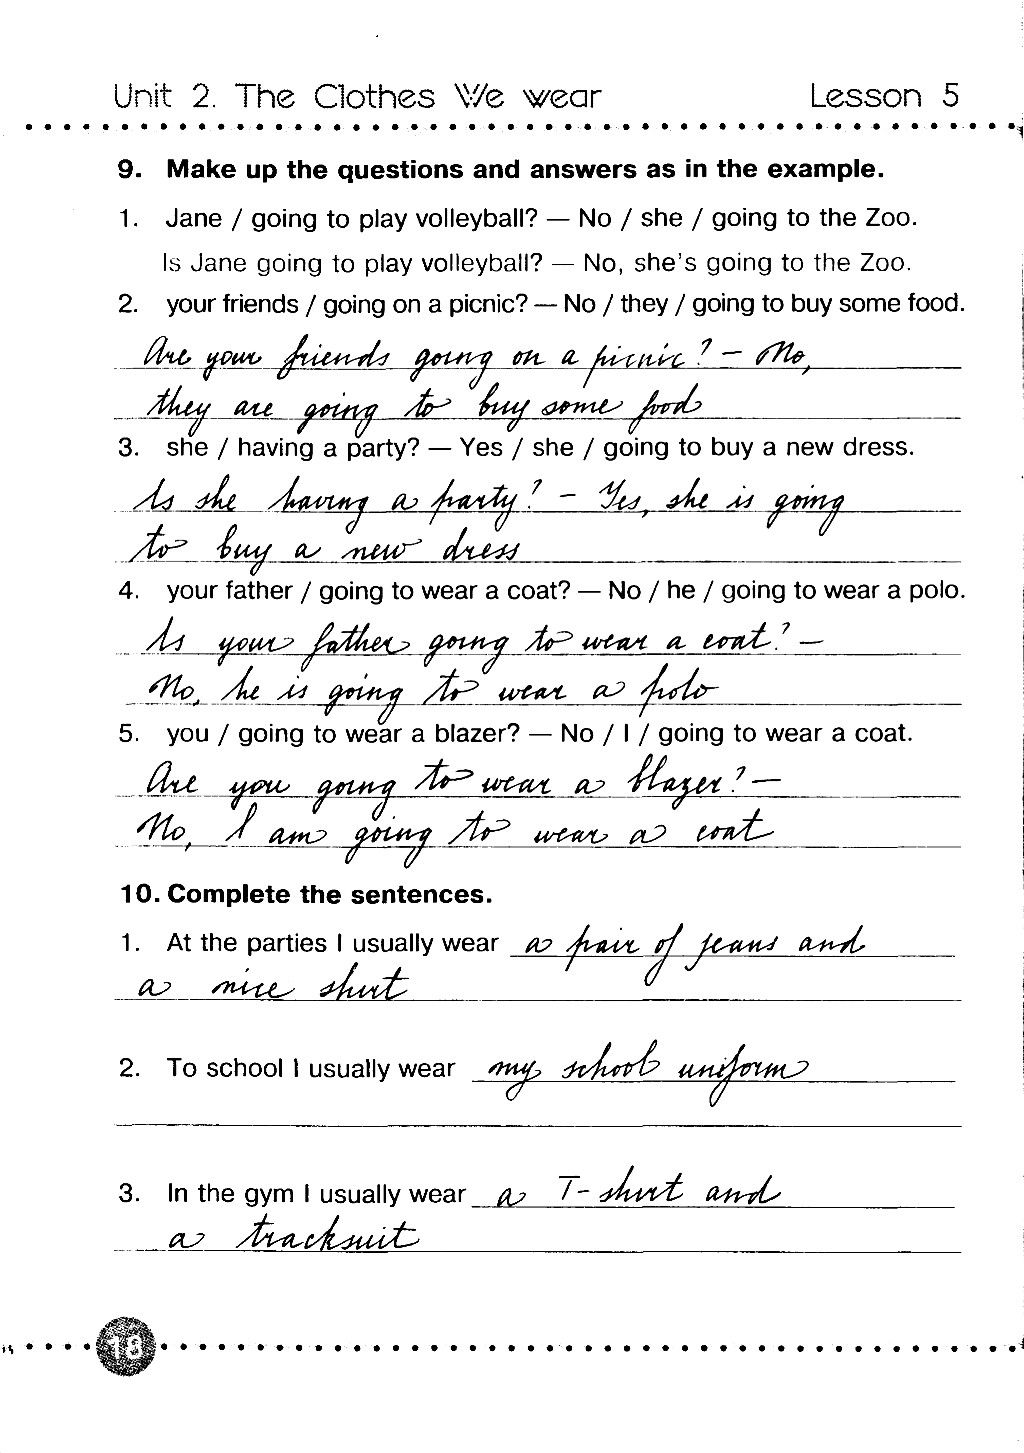 Unit 2. The Clothes We wear Lesson 5
9. Make up the questions and answers as in the example.
1. Jane / going to play volleyball? — No / she / going to the Zoo.
Is Jane going to play volleyball? — No, she's going to the Zoo.
2. your friends / going on a picnic? — No / they / going to buy some food.
Are your friends going on a picnic? – No,
they are going to buy some food
3. she / having a party? — Yes / she / going to buy a new dress.
Is she having a party? – Yes, she is going
to buy a new dress
4. your father / going to wear a coat? — No / he / going to wear a polo.
Is your father going to wear a coat? –
No, he is going to wear a polo
5. you / going to wear a blazer? — No / I / going to wear a coat.
Are you going to wear a blazer? –
No, I am going to wear a coat
10. Complete the sentences.
1. At the parties I usually wear a pair of jeans and
a nice shirt
2. To school I usually wear my school uniform
3. In the gym I usually wear a T-shirt and
a tracksuit
18